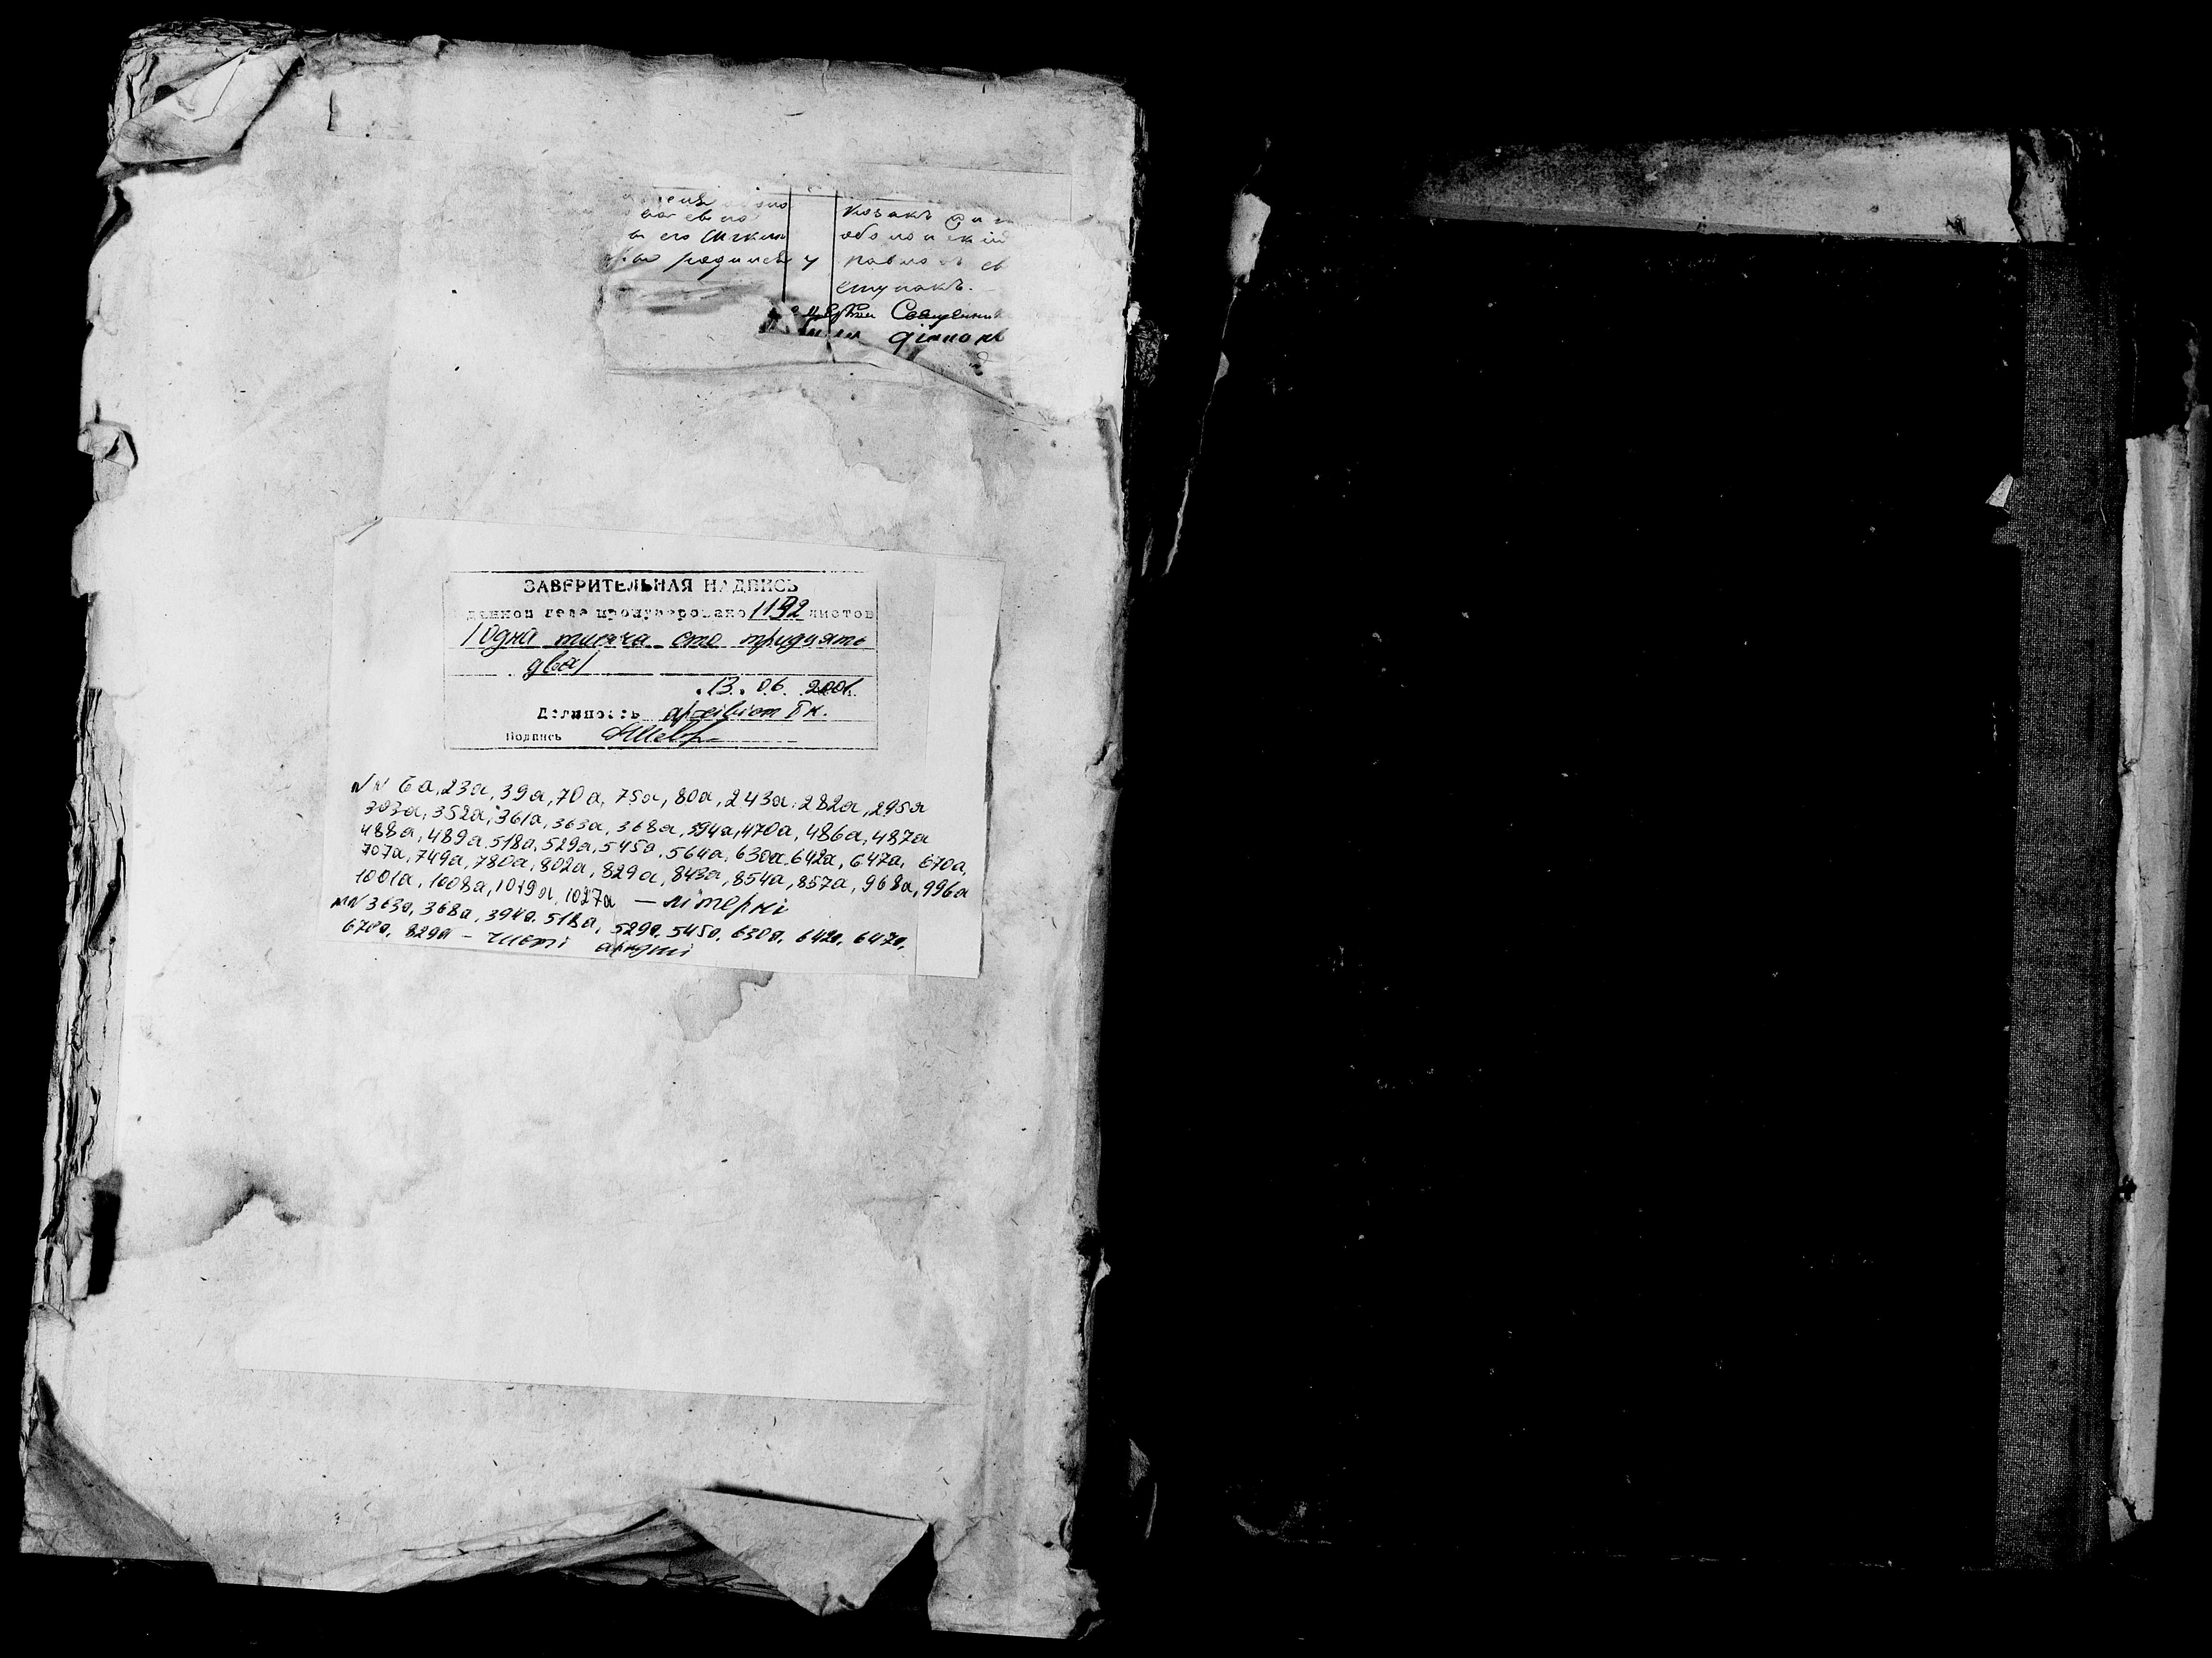 козакъ
его
родилась у
ступакъ.
ЗАВЕРИТЕЛЬНАЯ НАДПИСЬ
данном деле пронумеровано 1132 листов
/одна тисяча сто тридцять
два/
13. 06. 2001.
Должность архівіст II к.
Подпись
NN 6а, 23а, 39а, 70а, 75а, 80а, 243а, 282а, 295а
303а, 352а, 361а, 363а, 368а, 394а, 470а, 486а, 487а
488а, 489а, 518а, 529а, 545а, 564а, 630а, 642а, 647а, 670а,
707а, 749а, 780а, 802а, 829а, 843а, 854а, 857а, 968а, 996а
1001а, 1008а, 1019а, 1027а — літерні
NN 363а, 368а, 394а, 518а, 529а, 545а, 630а, 642а, 647а,
670а, 829а – чисті аркуші